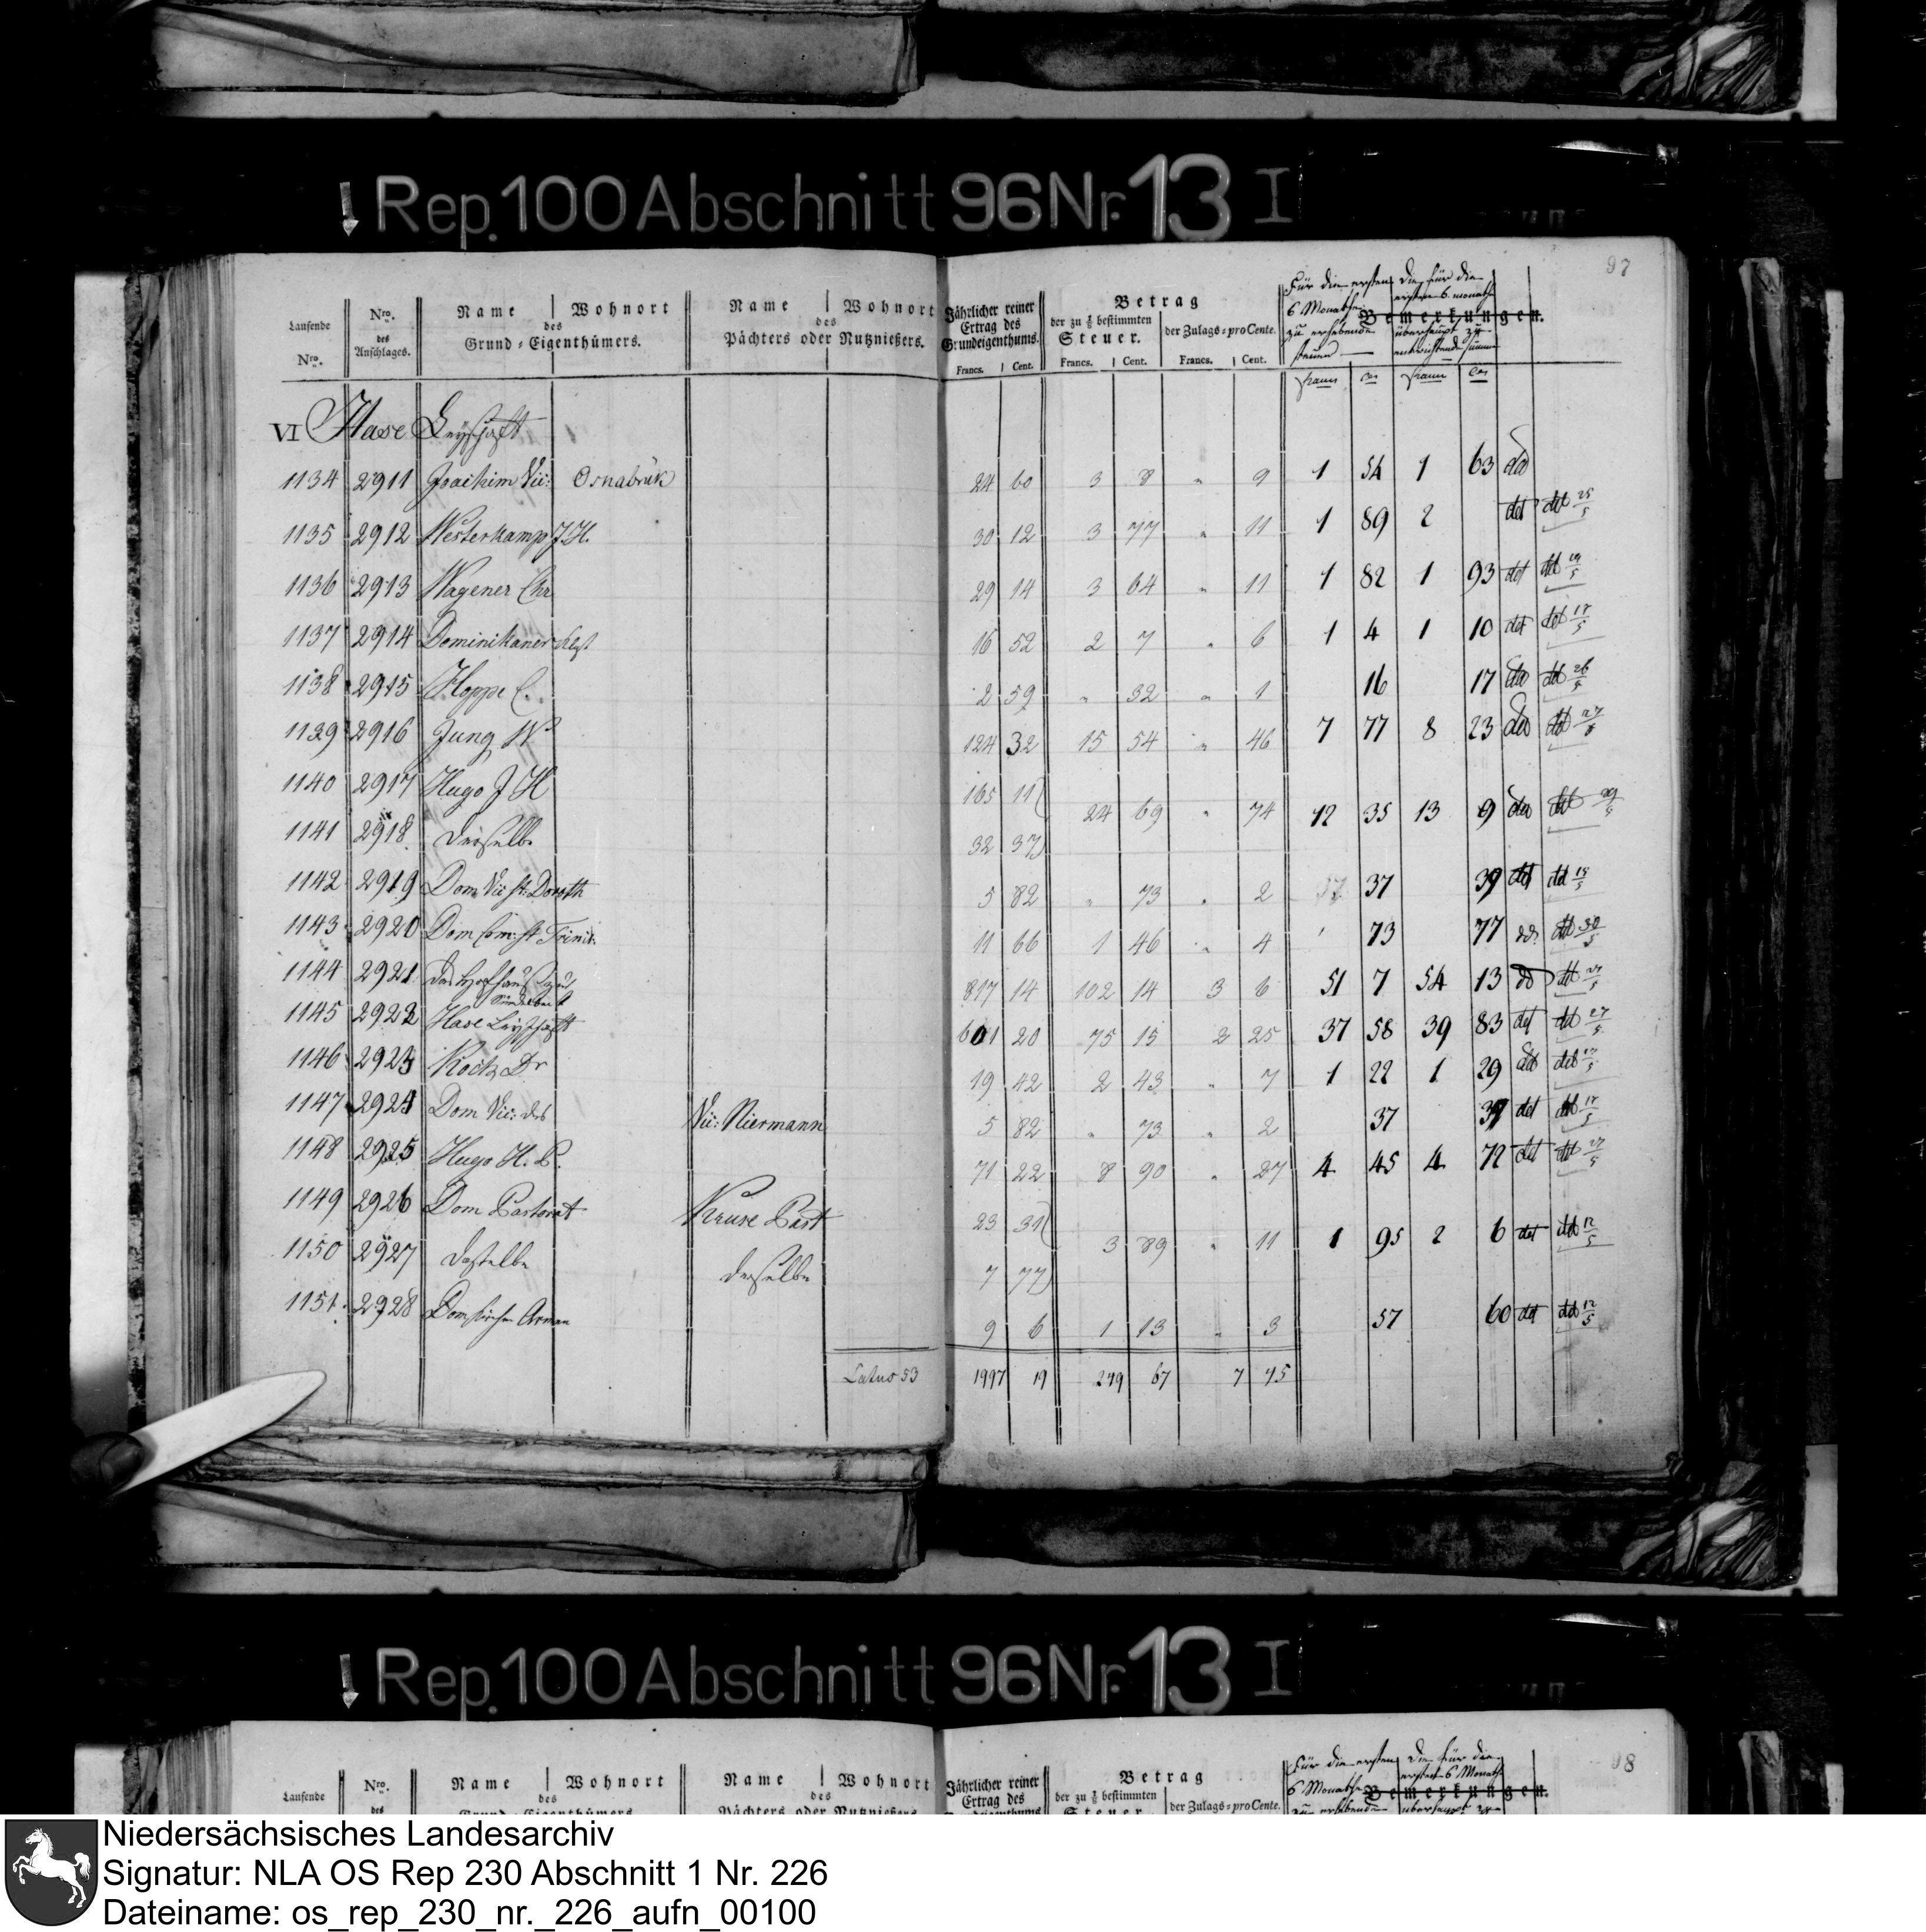 Rep. 100 Abschnitt 96 Nr. 13 I
97
Laufende Nro.
Nro. des Anschlages.
Name | Wohnort des Grund-Eigenthümers.
Name | Wohnort des Pächters oder Nutznießers.
Jährlicher reiner Ertrag des Grundeigenthums. Francs. | Cent.
Betrag
der zu 1/8 bestimmten Steuer. Francs. | Cent.
der Zulags-pro Cente. Francs. | Cent.
Bemerkungen.
Für die ersten 6 Monathe zu erhebende Steuer
Die für die ersten 6 monathe überhaupt zu entrichtende Summe
VI Hase Leyschaft
1134 2911 Joachim Vic: Osnabrük 24 60 3 8 " 9 1 54 1 63
1135 2912 Westerkamp J. H. 30 12 3 77 " 11 1 89 2 ddt 25/5
1136 2913 Wagener Chr 29 14 3 64 " 11 1 82 1 93 ddt
1137 2914 Dominikaner 16 52 2 7 " 6 1 4 1 10 ddt 17/5
1138 2915 Hoppe C. 2 59 " 32 " 1 16 17 26/5
1139 2916 Jung W 124 32 15 54 " 46 7 77 8 23
1140 2917 Hugo J H 165 11
1141 2918 derselbe 32 37 24 69 " 74 12 35 13 9
1142 2919 Dom Vic st. Doroth 5 82 " 73 " 2 37 39
1143 2920 Dom Com: st Trinit. 11 66 1 46 " 4 73 77 30/5
1144 2921 817 14 102 14 3 6 51 7 54 13
1145 2922 Hase Leyschaft 601 20 75 15 2 25 37 58 39 83 ddt 27/5
1146 2923 Kock Dr 19 42 2 43 " 7 1 22 1 29
1147 2924 Dom Vic: Vic: Niermann 5 82 " 73 " 2 37 39 ddt 17/5
1148 2925 Hugo H. P. 71 22 8 90 " 27 4 45 4 72 ddt 27/5
1149 2926 Dom Pastorat Kruse Past 23 31
1150 2927 dasselbe derselbe 7 77 3 89 " 11 1 95 2 6 ddt 12/5
1151 2928 9 6 1 13 " 3 57 60 ddt 12/5
Latus 53 1997 19 249 67 7 45
Rep. 100 Abschnitt 96 Nr. 13 I
98
Laufende
Nro. des
Name | Wohnort des
Name | Wohnort des
Jährlicher reiner Ertrag des
Betrag
der zu 1/8 bestimmten
der Zulags-pro Cente.
Für die ersten 6 Monathe
Die für die ersten 6 Monathe
Bemerkungen.
Niedersächsisches Landesarchiv
Signatur: NLA OS Rep 230 Abschnitt 1 Nr. 226
Dateiname: os_rep_230_nr._226_aufn_00100